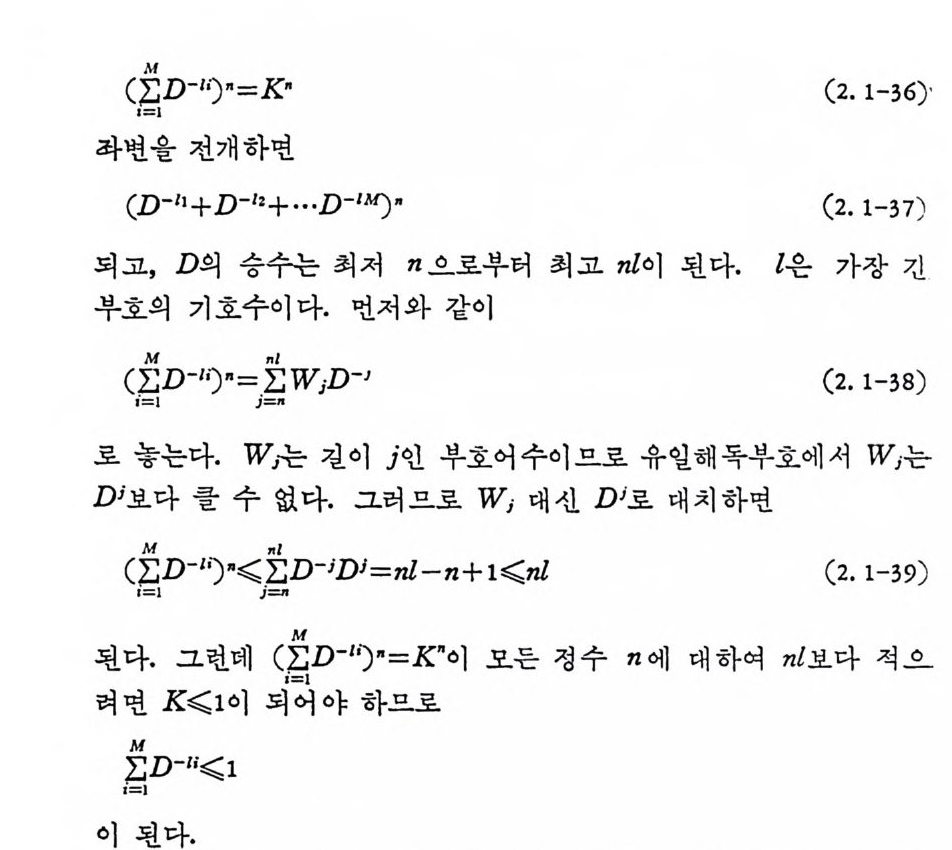 (∑_{i=1}^{M} D^{-li})^n = K^n (2. 1-36)
좌변을 전개하면
(D^{-l_1}+D^{-l_2}+…D^{-lM})^n (2. 1-37)
되고, D의 승수는 최저 n으로부터 최고 nl이 된다. l은 가장 긴
부호의 기호수이다. 먼저와 같이
(∑_{i=1}^{M} D^{-li})^n = ∑_{j=n}^{nl} W_j D^{-j} (2. 1-38)
로 놓는다. W_j는 길이 j인 부호어수이므로 유일해독부호에서 W_j는
D^j보다 클 수 없다. 그러므로 W_j 대신 D^j로 대치하면
(∑_{i=1}^{M} D^{-li})^n ≤ ∑_{j=n}^{nl} D^{-j}D^j = nl-n+1 ≤ nl (2. 1-39)
된다. 그런데 (∑_{i=1}^{M} D^{-li})^n = K^n이 모든 정수 n에 대하여 nl보다 적으
려면 K≤1이 되어야 하므로
∑_{i=1}^{M} D^{-li} ≤ 1
이 된다.